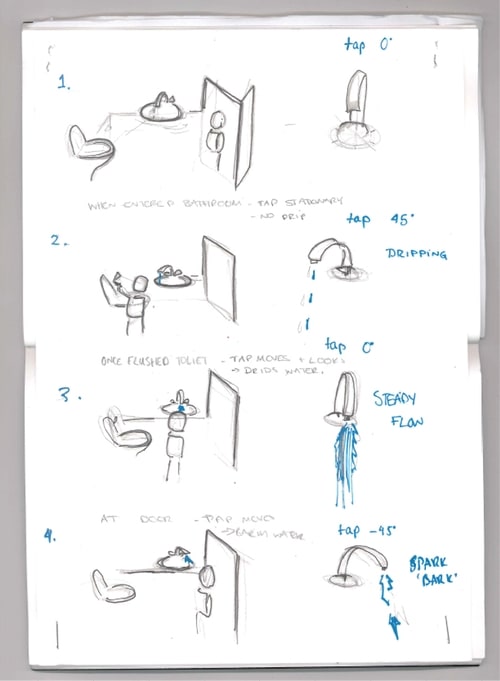 tap 0°
1.
WHEN ENTERED BATHROOM - TAP STATIONARY
- NO DRIP
tap 45°
2.
DRIPPING
ONCE FLUSHED TOILET - TAP MOVES + LOOKS
→ DRIPS WATER.
tap 0°
3.
STEADY
FLOW
AT DOOR - TAP MOVES
WATER
4.
tap -45°
SPARK
'BARK'